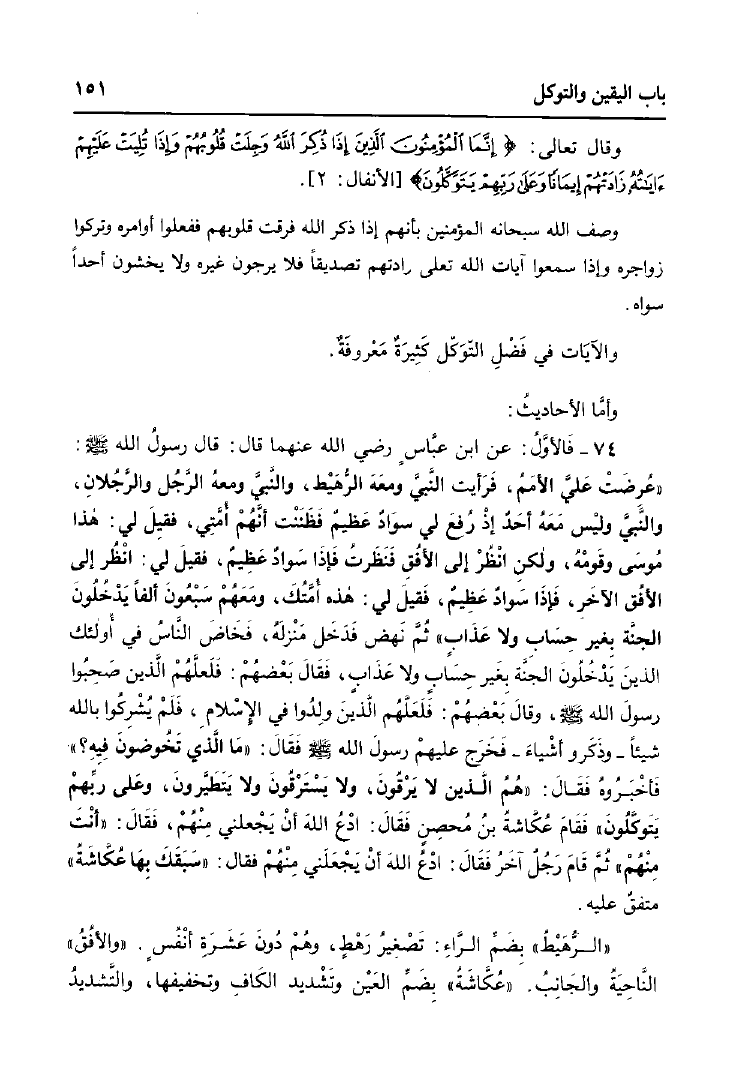 باب اليقين والتوكل ١٥١
وقال تعالى: ﴿ إِنَّمَا الْمُؤْمِنُونَ الَّذِينَ إِذَا ذُكِرَ اللَّهُ وَجِلَتْ قُلُوبُهُمْ وَإِذَا تُلِيَتْ عَلَيْهِمْ
ءَايَٰتُهُۥ زَادَتْهُمْ إِيمَانًا وَعَلَىٰ رَبِّهِمْ يَتَوَكَّلُونَ﴾ [الأنفال: ٢].
وصف الله سبحانه المؤمنين بأنهم إذا ذكر الله فرقت قلوبهم ففعلوا أوامره وتركوا
زواجره وإذا سمعوا آيات الله تعلى رادتهم تصديقاً فلا يرجون غيره ولا يخشون أحداً
سواه.
والآيَات في فَضْلِ التّوَكّل كَثِيرَةٌ مَعْروفَةٌ.
وأمَّا الأحاديثُ:
٧٤ - فَالأوَّلُ: عن ابن عبَّاس ٍ رضي الله عنهما قال: قال رسولُ الله ﷺ:
«عُرضَتْ عَليَّ الأمَمُ، فَرَأيت النَّبيَّ ومعَهَ الرُّهَيْط، والنَّبيَّ ومعهُ الرَّجُل والرَّجُلان،
والنَّبيَّ وليْس مَعَهُ أحَدٌ إذْ رُفِعَ لي سوَادٌ عظيمٌ فَظَنَنْت أنَّهُمْ أُمَّتِي، فقيلَ لي: هٰذا
مُوسَى وقومُهُ، ولٰكن انْظُرْ إلى الأفُق فَنَظَرتُ فَإذَا سَوادٌ عَظيمٌ، فقيلَ لي: انْظُر إلى
الأفُق الآخر، فإذا سَوادٌ عَظيمٌ، فَقيلَ لي: هٰذه أُمَّتُكَ، ومَعَهُمْ سَبْعُونَ ألفاً يَدْخُلُونَ
الجنَّةَ بغير حِسَاب ولا عَذَاب» ثُمَّ نَهض فَدَخل مَنْزِلَهُ، فَخَاضَ النَّاسُ في أولَئك
الذينَ يَدْخُلُونَ الجنَّةَ بِغَير حِسَاب ٍ ولا عَذَاب ٍ، فَقالَ بَعْضهُمْ: فَلَعلَّهُمْ الَّذين صَحِبُوا
رسولَ الله ﷺ، وقالَ بَعْضُهُمْ: فَلَعَلَّهُم الَّذينَ ولِدُوا في الإِسْلام ِ، فَلَمْ يُشْركُوا بالله
شيئاً - وذَكَرو أشْياءَ - فَخَرَج عليهمْ رسولُ الله ﷺ فقَالَ: «مَا الَّذي تَخُوضونَ فِيهِ؟»
فَأخْبَـرُوهُ فَقَـالَ: «هُمُ الَّـذين لا يَرْقُونَ، ولا يَسْتَرْقُونَ ولا يَتَطَيَّرونَ، وعَلى ربِّهمْ
يَتوكَّلُونَ» فَقامَ عُكَّاشةُ بنُ مُحصنٍ فقَالَ: ادْعُ اللهَ أنْ يَجْعلني مِنْهُمْ، فَقَالَ: «أنْتَ
مِنْهُمْ» ثُمَّ قامَ رَجُلٌ آخرُ فَقَالَ: ادْعُ اللهَ أنْ يَجْعَلَني مِنْهُمْ فقالَ: «سَبَقَكَ بِهَا عُكَّاشَةُ»
متفقٌ عليه.
«الـرُّهَيْطُ» بِضَمِّ الـرَّاء: تَصْغيرُ رَهْطٍ، وهُمْ دُونَ عَشَرَةِ أنْفُس ٍ. «والأفُقُ»
النَّاحِيَةُ والجَانِبُ. «عُكَّاشَةُ» بِضَمِّ العَيْن وتَشْديد الكَافِ وتخفيفها، والتَّشديدُ